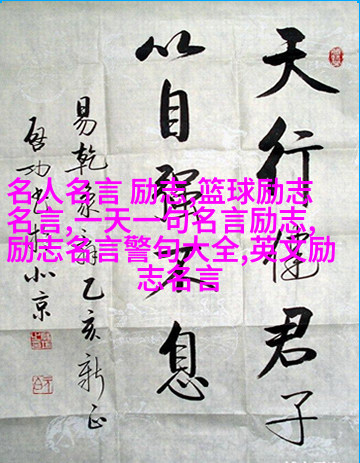 天行健君子
以自強不息
易乾象辭乙亥新正
啟功書於北京
名人名言 励志,篮球励志
名言,一天一句名言励志,
励志名言警句大全,英文励
志名言